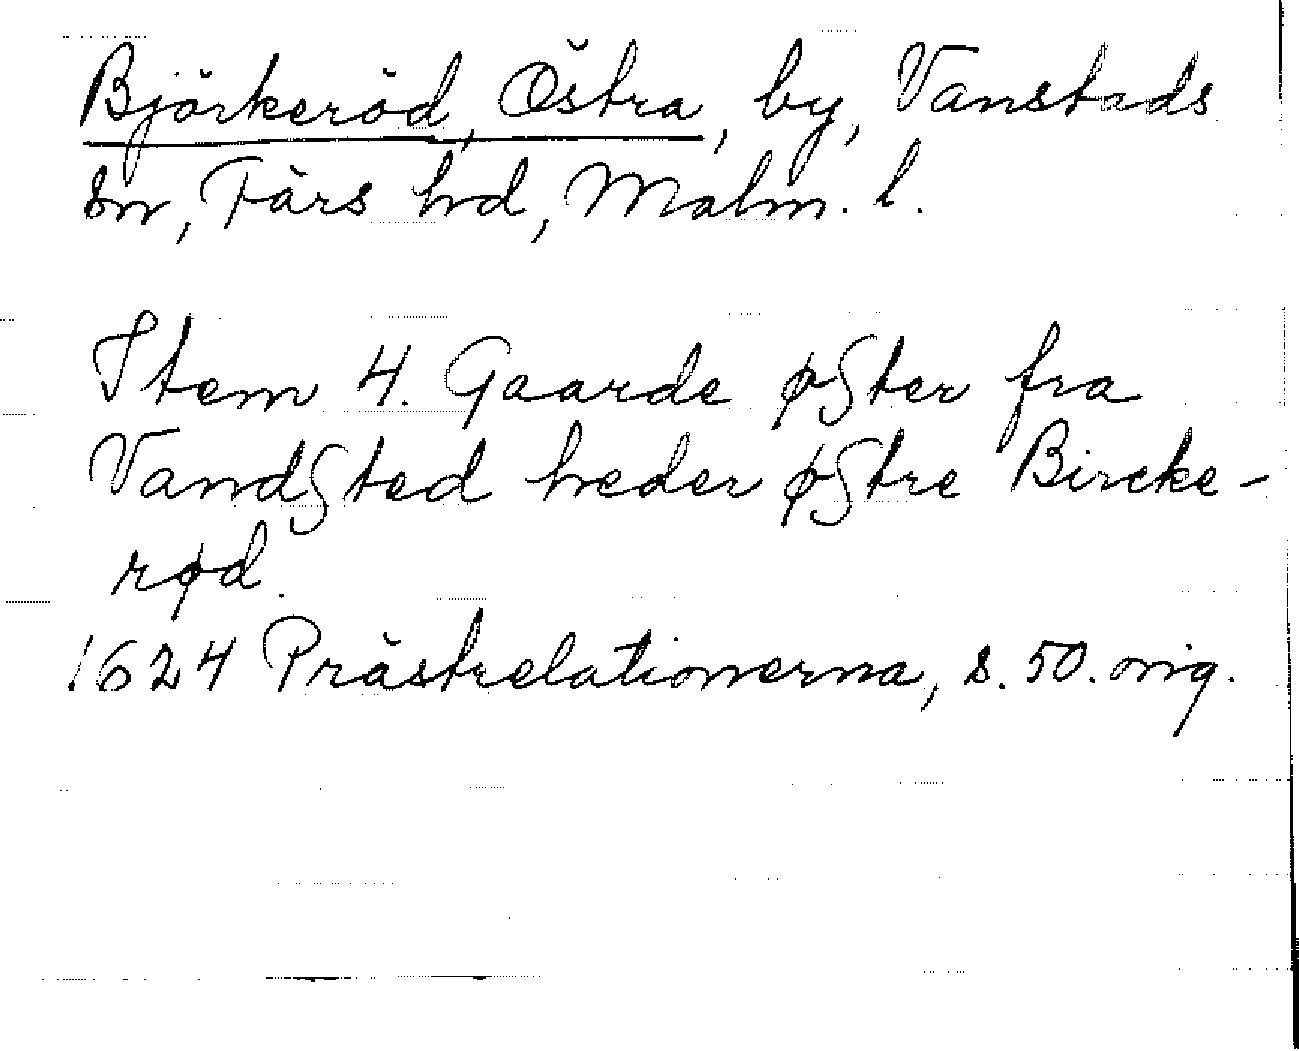 Björkeröd, Östra, by, Vanstads
sn, Färs hd, Malm. l.
Item 4. Gaarde øßter fra
Vandßted heder øßtre Bircke-
rød.
1624 Prästrelationerna, s. 50. orig.